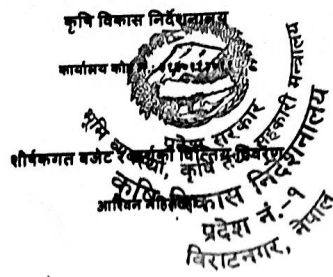 कृषि विकास निर्देशनालय
कार्यालय कोड नं
शीर्षकगत बजेट र खर्चको वित्तिय विवरण
प्रदेश सरकार
भूमि व्यवस्था, कृषि तथा सहकारी मन्त्रालय
कृषि विकास निर्देशनालय
प्रदेश नं.-१
विराटनगर, नेपाल